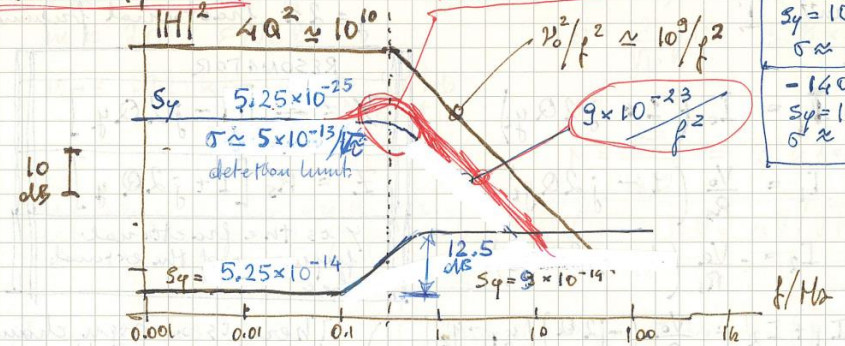 |H|² 4Q² ≈ 10¹⁰
ν₀²/f² ≈ 10⁹/f²
Sy = 10
σ ≈
-140
Sy = 1
σ ≈
Sy 5.25×10⁻²⁵
σ ≈ 5×10⁻¹³/√τ
detection limit
9×10⁻²³/f²
10
dB
Sφ = 5.25×10⁻¹⁴
12.5
dB
Sφ = 9×10⁻¹⁴
f/Hz
0.001 0.01 0.1 1 10 100 1k